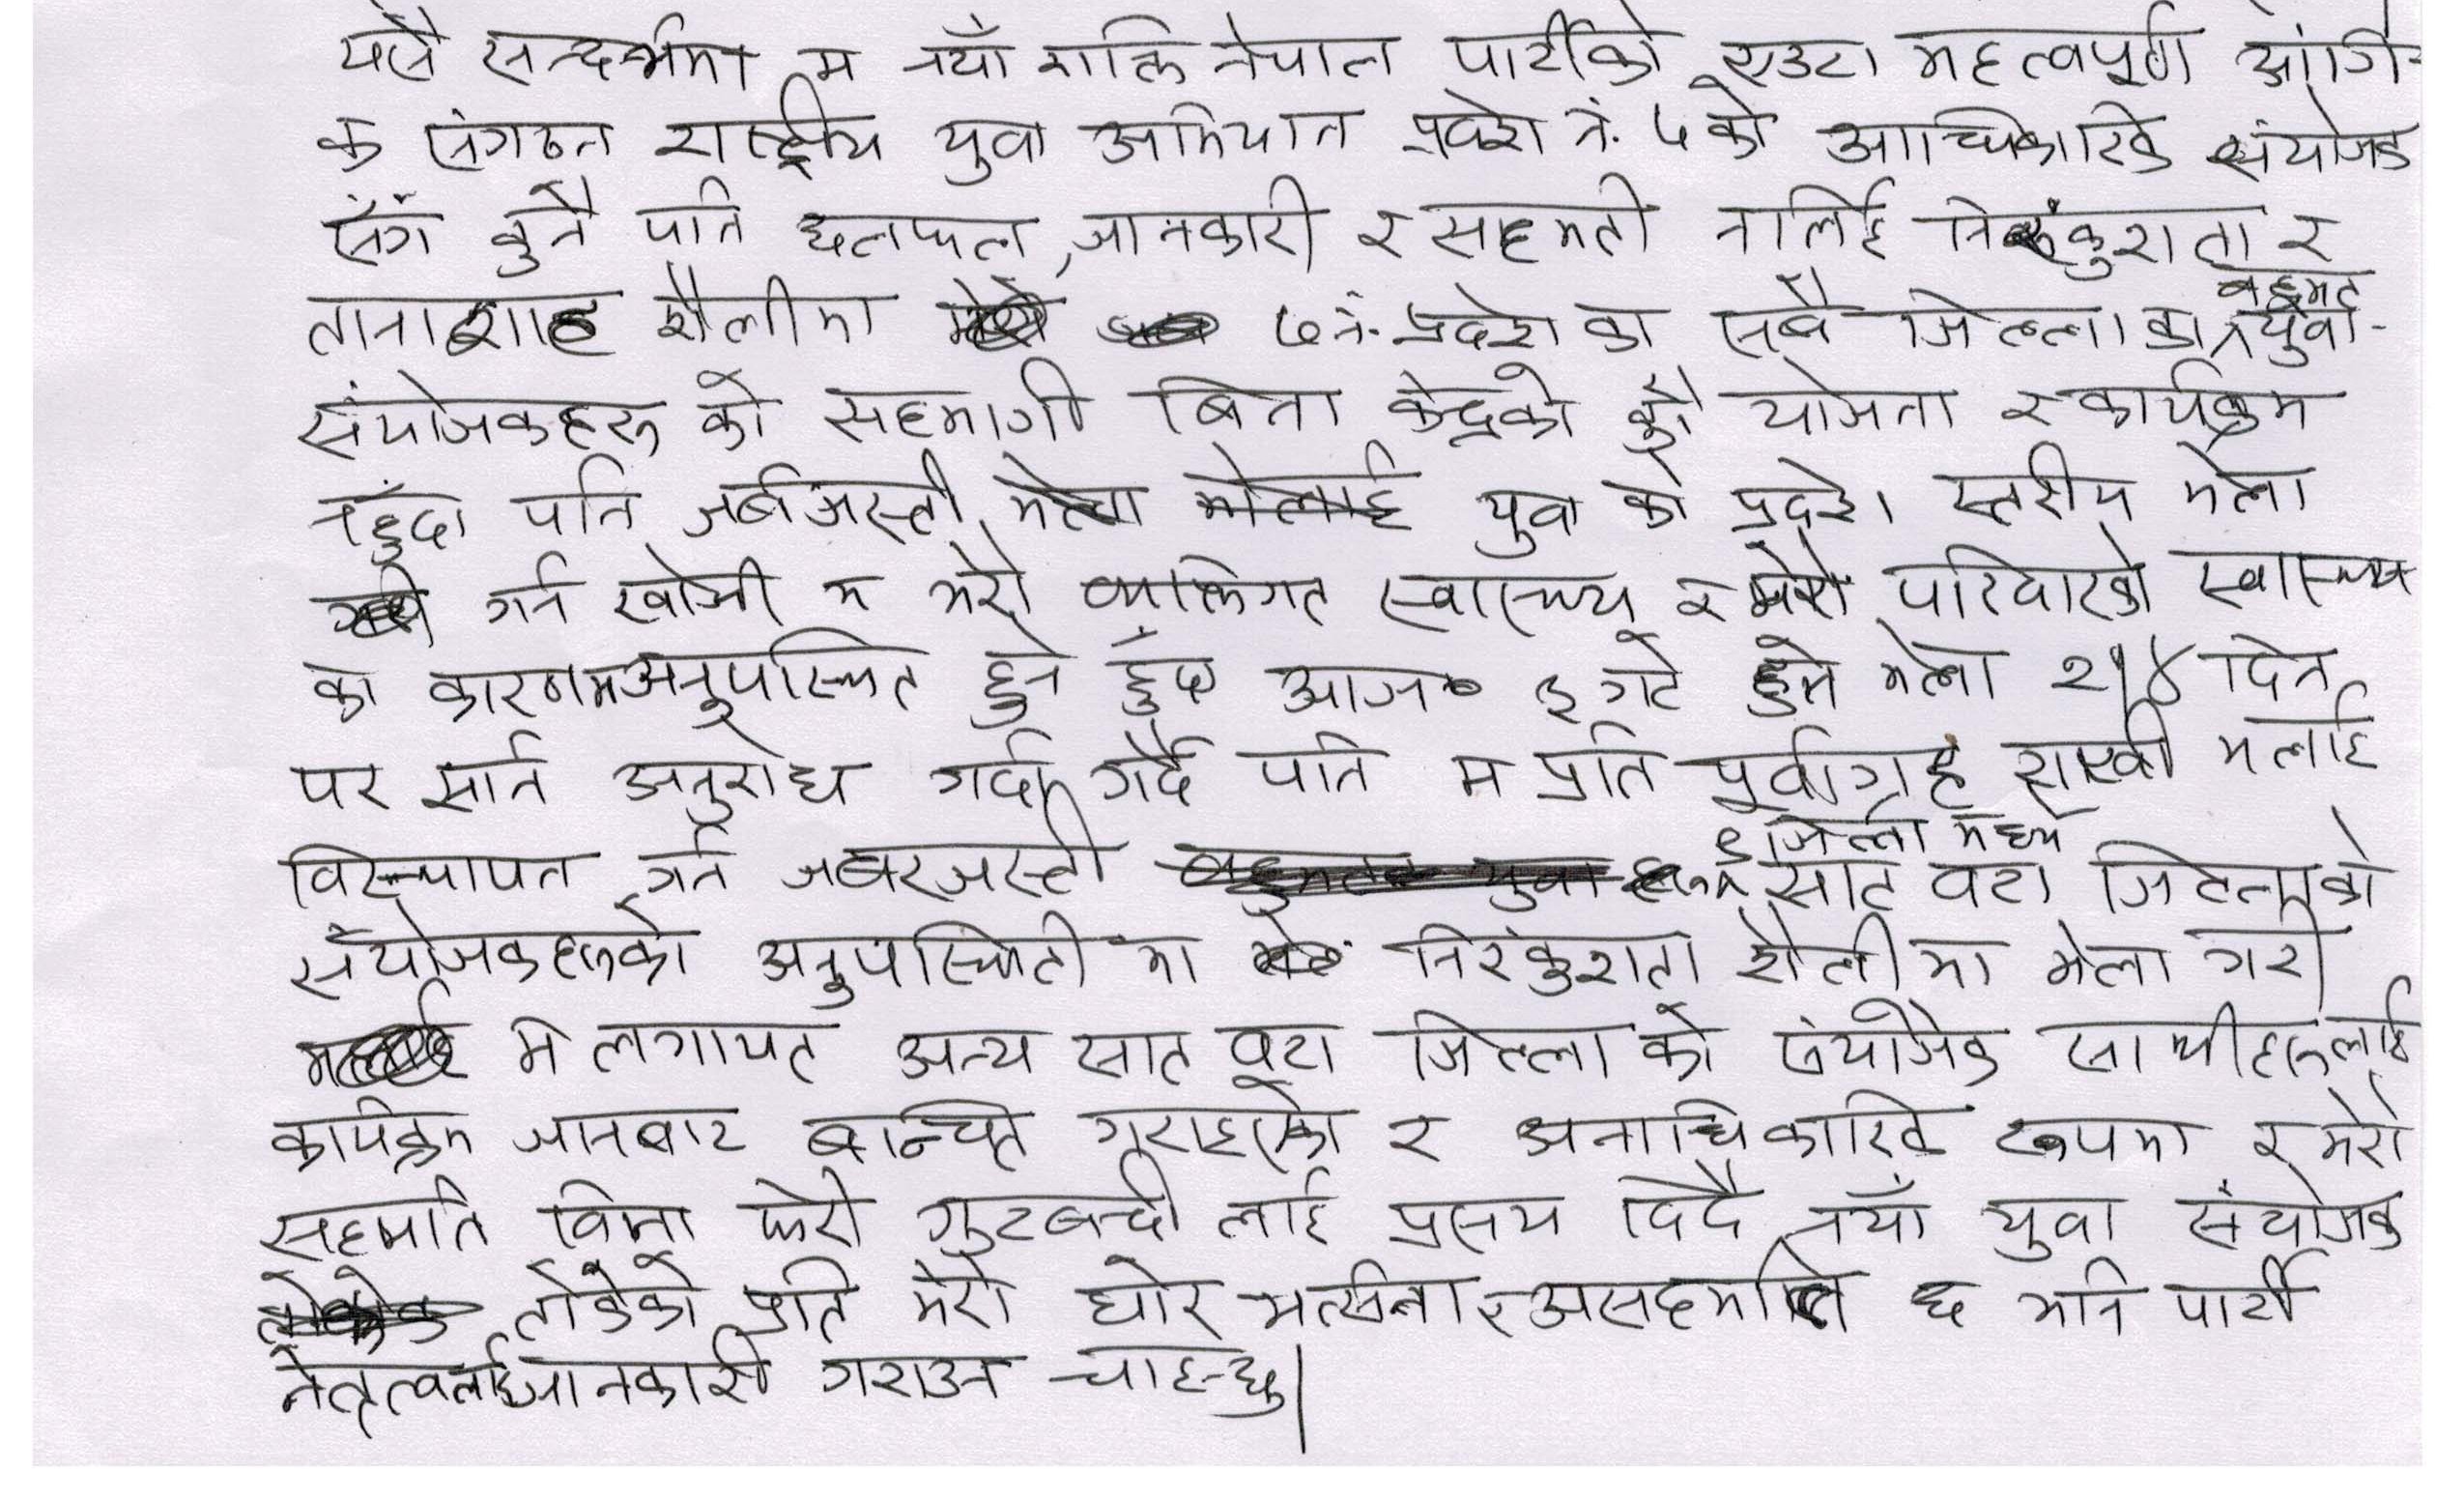 यसै सन्दर्भमा म नयाँ शक्ति नेपाल पार्टीको एउटा महत्वपूर्ण आंगि-
क संगठन राष्ट्रीय युवा अभियान प्रदेश नं. ७ को आधिकारिक संयोजक
सँग कुनै पनि छलफल, जानकारी र सहमती नलिई निरंकुशता र
तानाशाह शैलीमा ७ नं. प्रदेश का सबै जिल्ला का बहुमत युवा-
संयोजकहरु को सहभागी बिना केन्द्रको कुनै योजना र कार्यक्रम
नहुँदा पनि जर्बजस्ती युवा को प्रदेश स्तरीय मेला
गर्न खोजी म मेरो व्यक्तिगत स्वास्थ्य र मेरो परिवारको स्वास्थ्य
का कारणमअनुपस्थित हुने हुँदा आज ३ गते हुने मेला २।४ दिन
पर सार्न अनुरोध गर्दा गर्दै पनि म प्रति पूर्वाग्रह राखी मलाई
विस्थापन गर्न जबरजस्टी ९ जिल्ला मध्ये सात वटा जिल्लाको
संयोजकहरुको अनुपस्थिती मा निरंकुशता शैली मा मेला गरी
म लगायत अन्य सात वटा जिल्ला को संयोजक साथीहरुलाई
कार्यक्रम जानबाट बान्चित गराइएको र अनाधिकारिक रुपमा र मेरो
सहमति विना फेरी गुटबन्दी लाई प्रसय दिदै नयाँ युवा संयोजक
तोकेको प्रति मेरो घोर भर्त्सना र असहमति छ भनि पार्टी
नेतृत्वलाई जानकारी गराउन चाहन्छु।